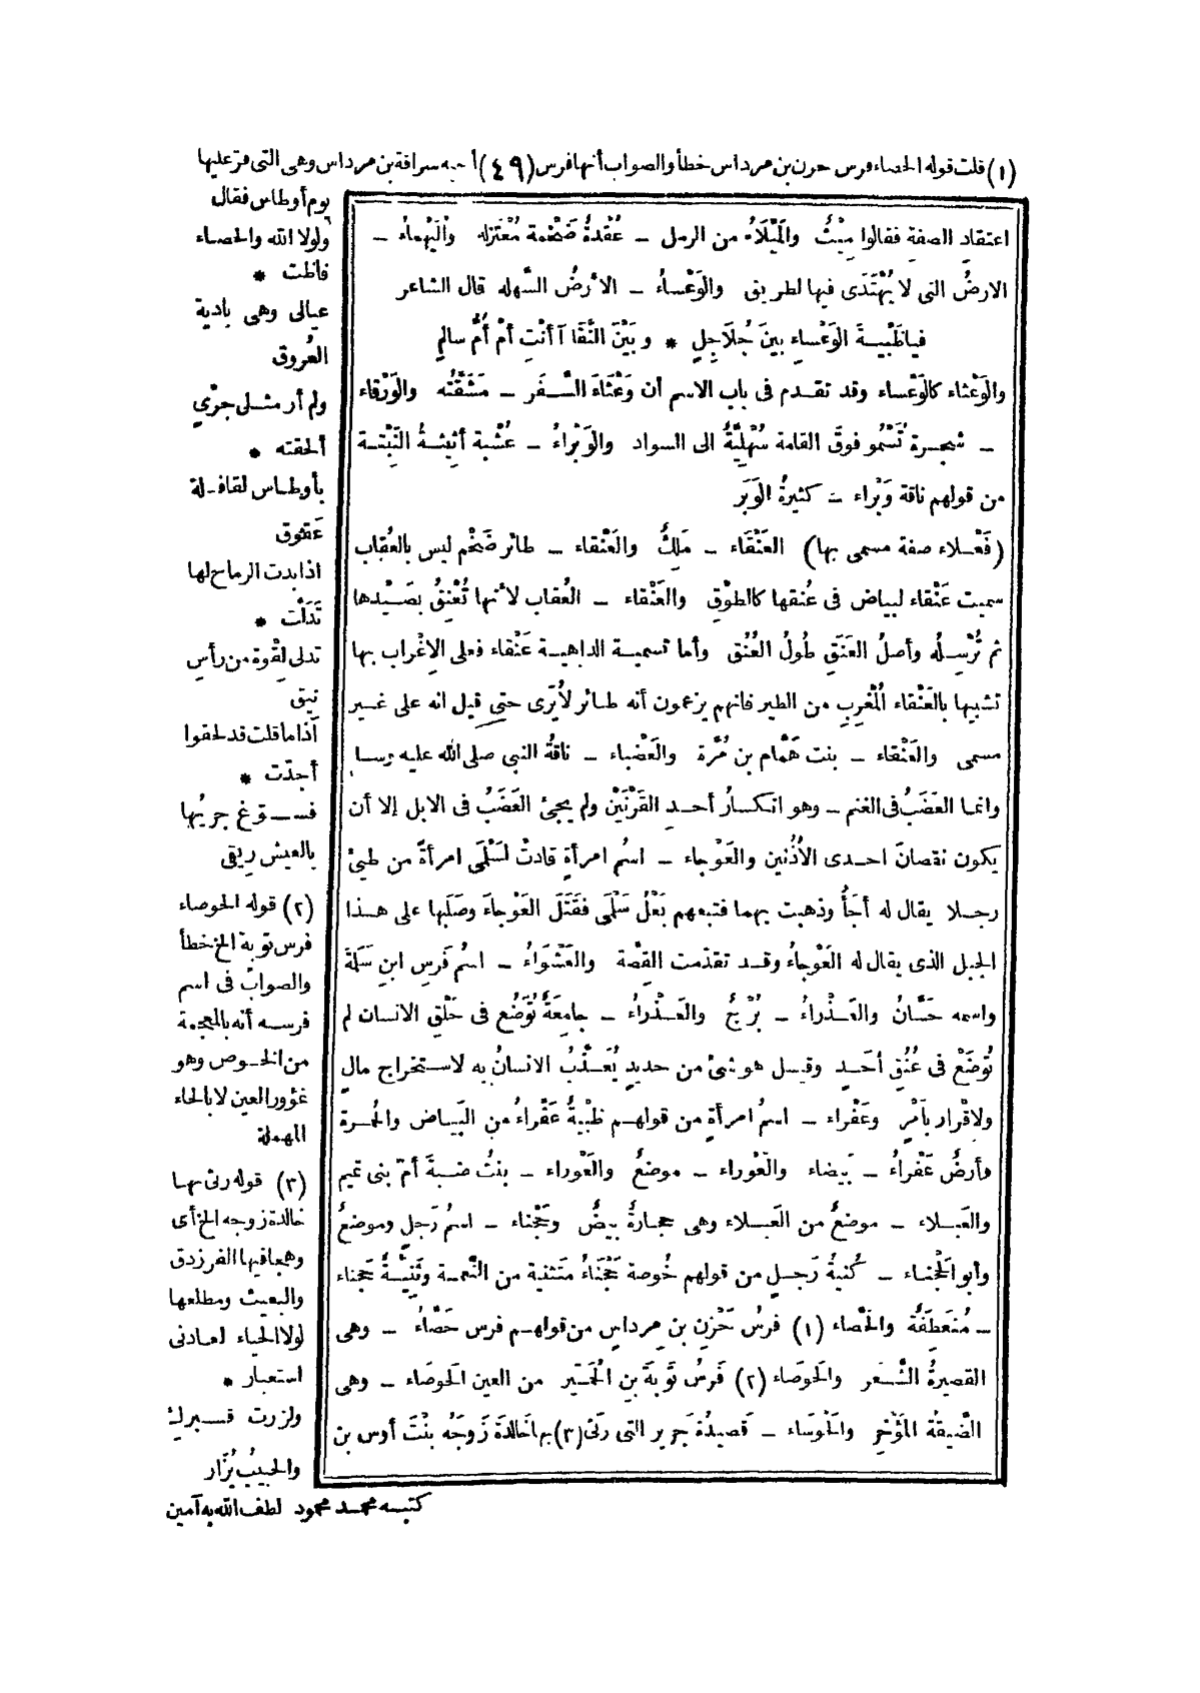 (١) قلت قوله الحصاء فرس حزن بن مرداس خطأ والصواب أنها فرس (٤٩) أخيه سراقة بن مرداس وهى التى فر عليها
اعتقادِ الصفةِ فقالوا مِيْثٌ والمَيْلَاءُ من الرمل – عُقْدةٌ ضَخْمة مُعْتَزِلة واليَهْماءُ –
الارضُ التى لا يُهْتَدَى فيها لطريق والوَعْساءُ – الأرضُ السَّهْلة قال الشاعر
فياظَبْيةَ الوَعْساءِ بينَ جُلَاجِلٍ * وبَيْنَ النَّقَا آأنْتِ أمْ أُمُّ سالمِ
والوَعْثاء كالوَعْساء وقد تقدم فى باب الاسم أن وَعْثَاءَ السَّفَر – مَشَقَّتُه والوَرْقاء
– شجرة تَسْمُو فوقَ القامة سُهْلِيَّةٌ الى السواد والوَبْراءُ – عُشْبة أثِيثةُ النَّبْتة
من قولهم ناقة وَبْراء – كثيرةُ الوَبَر
(فَعْلاء صفة مسمى بها) العَنْقَاء – مَلِكٌ والعَنْقاء – طائر ضَخْم ليس بالعُقاب
سميت عَنْقاء لبياض فى عُنقها كالطوْقِ والعَنْقاء – العُقاب لأنها تُعْنِقُ بصَيْدها
ثم تُرْسِلُه وأصلُ العَنَقِ طُولُ العُنُق وأما تسمية الداهية عَنْقاء فعلى الاِغْراب بها
تشبيها بالعَنْقاء المُغْرِبِ من الطير فانهم يزعمون أنه طائر لا يُرَى حتى قيل انه على غير
مسمى والعَنْقاء – بنت هَمَّام بن مُرَّة والعَضْباء – ناقةُ النبي صلى الله عليه وسلم
وانما العَضَبُ فى الغنم – وهو انكسارُ أحدِ القَرْنَيْنِ ولم يجئ العَضَبُ فى الابل إلا أن
يكون نقصانَ احدى الأذُنين والعَوْجاء – اسمُ امرأةٍ قادتْ لسَلْمَى امرأةً من طيئ
رجلا يقال له أجَأُ وذهبت بهما فتبعهم بَعْلُ سَلْمَى فقَتَلَ العَوْجاءَ وصَلَبها على هذا
الجبل الذى يقال له العَوْجاءُ وقد تقدّمت القِصَّة والعَشْواءُ – اسمُ فَرَسِ ابنِ سَلَمَة
واسمه حَسَّانُ والعَذْراءُ – بُرْجٌ والعَذْراءُ – جامِعَةٌ تُوضَعُ فى حَلْقِ الانسان لم
تُوضَعْ فى عُنُقِ أحَدٍ وقيل هو شئ من حديدٍ يُعَذَّبُ الانسانُ به لاستخراج مالٍ
ولاقْرار بأمْرٍ وعَفْراء – اسمُ امرأةٍ من قولهم ظَبْيةٌ عَفْراءُ من البَياض والحُمرة
وأرضٌ عَفْراءُ – بَيضاء والعَوْراء – موضعٌ والعَوْراء – بنتُ ضبةَ أمّ بنى تميم
والعَبلاء – موضعٌ من العَبلاء وهى حجارةٌ بيضٌ وحَجْناء – اسمُ رَجلٍ وموضعٌ
وأبو الحَجْناء – كُنيةُ رَجلٍ من قولهم خُوصة حَجْنَاءُ متثنية من النَّعْمة وثَنِيَّةٌ حَجناء
– مُنعَطِفَةٌ والحَصّاء (١) فرسُ حَزْنِ بن مِرداسٍ من قولهم فرس حَصّاءُ – وهى
القصيرةُ الشَّعَر والحَوصَاء (٢) فَرسُ تَوبَةَ بنِ الحُمَيّر من العين الحَوصاء – وهى
الضَّيقةُ المُؤْخِر والحَوْساء – قَصيدُة جَرير التى رَثَى (٣) بها خَالدَة زَوجَهُ بنْتَ أوس بن
يوم أوطاس فقال
ولولا الله والحصاء
فاظت *
عيالى وهى بادية
العُروق
ولم أر مثلى جزّي
ألحقته *
بأوطاس لقافلة
عَقوق
اذا بدت الرماح لها
تَدَلّت *
تدلى لِقْوة من رأسِ
نيق
اذا ما قلت قد لحقوا
أجدّت *
فسوّغ جريُها
بالعيش رِيقى
(٢) قوله الحوصاء
فرس توبة الخ خطأ
والصواب فى اسم
فرسه أنه بالمعجمة
من الخوص وهو
غؤور العين لا بالحاء
المهملة
(٣) قوله رثى بها
خالدة زوجه الخ أى
وهجا فيها الفرزدق
والبعيث ومطلعها
لولا الحياء لعادنى
استعبار *
ولزرت قبرك
والحبيبُ يُزَار
كتبه محمد محمود لطف الله به آمين